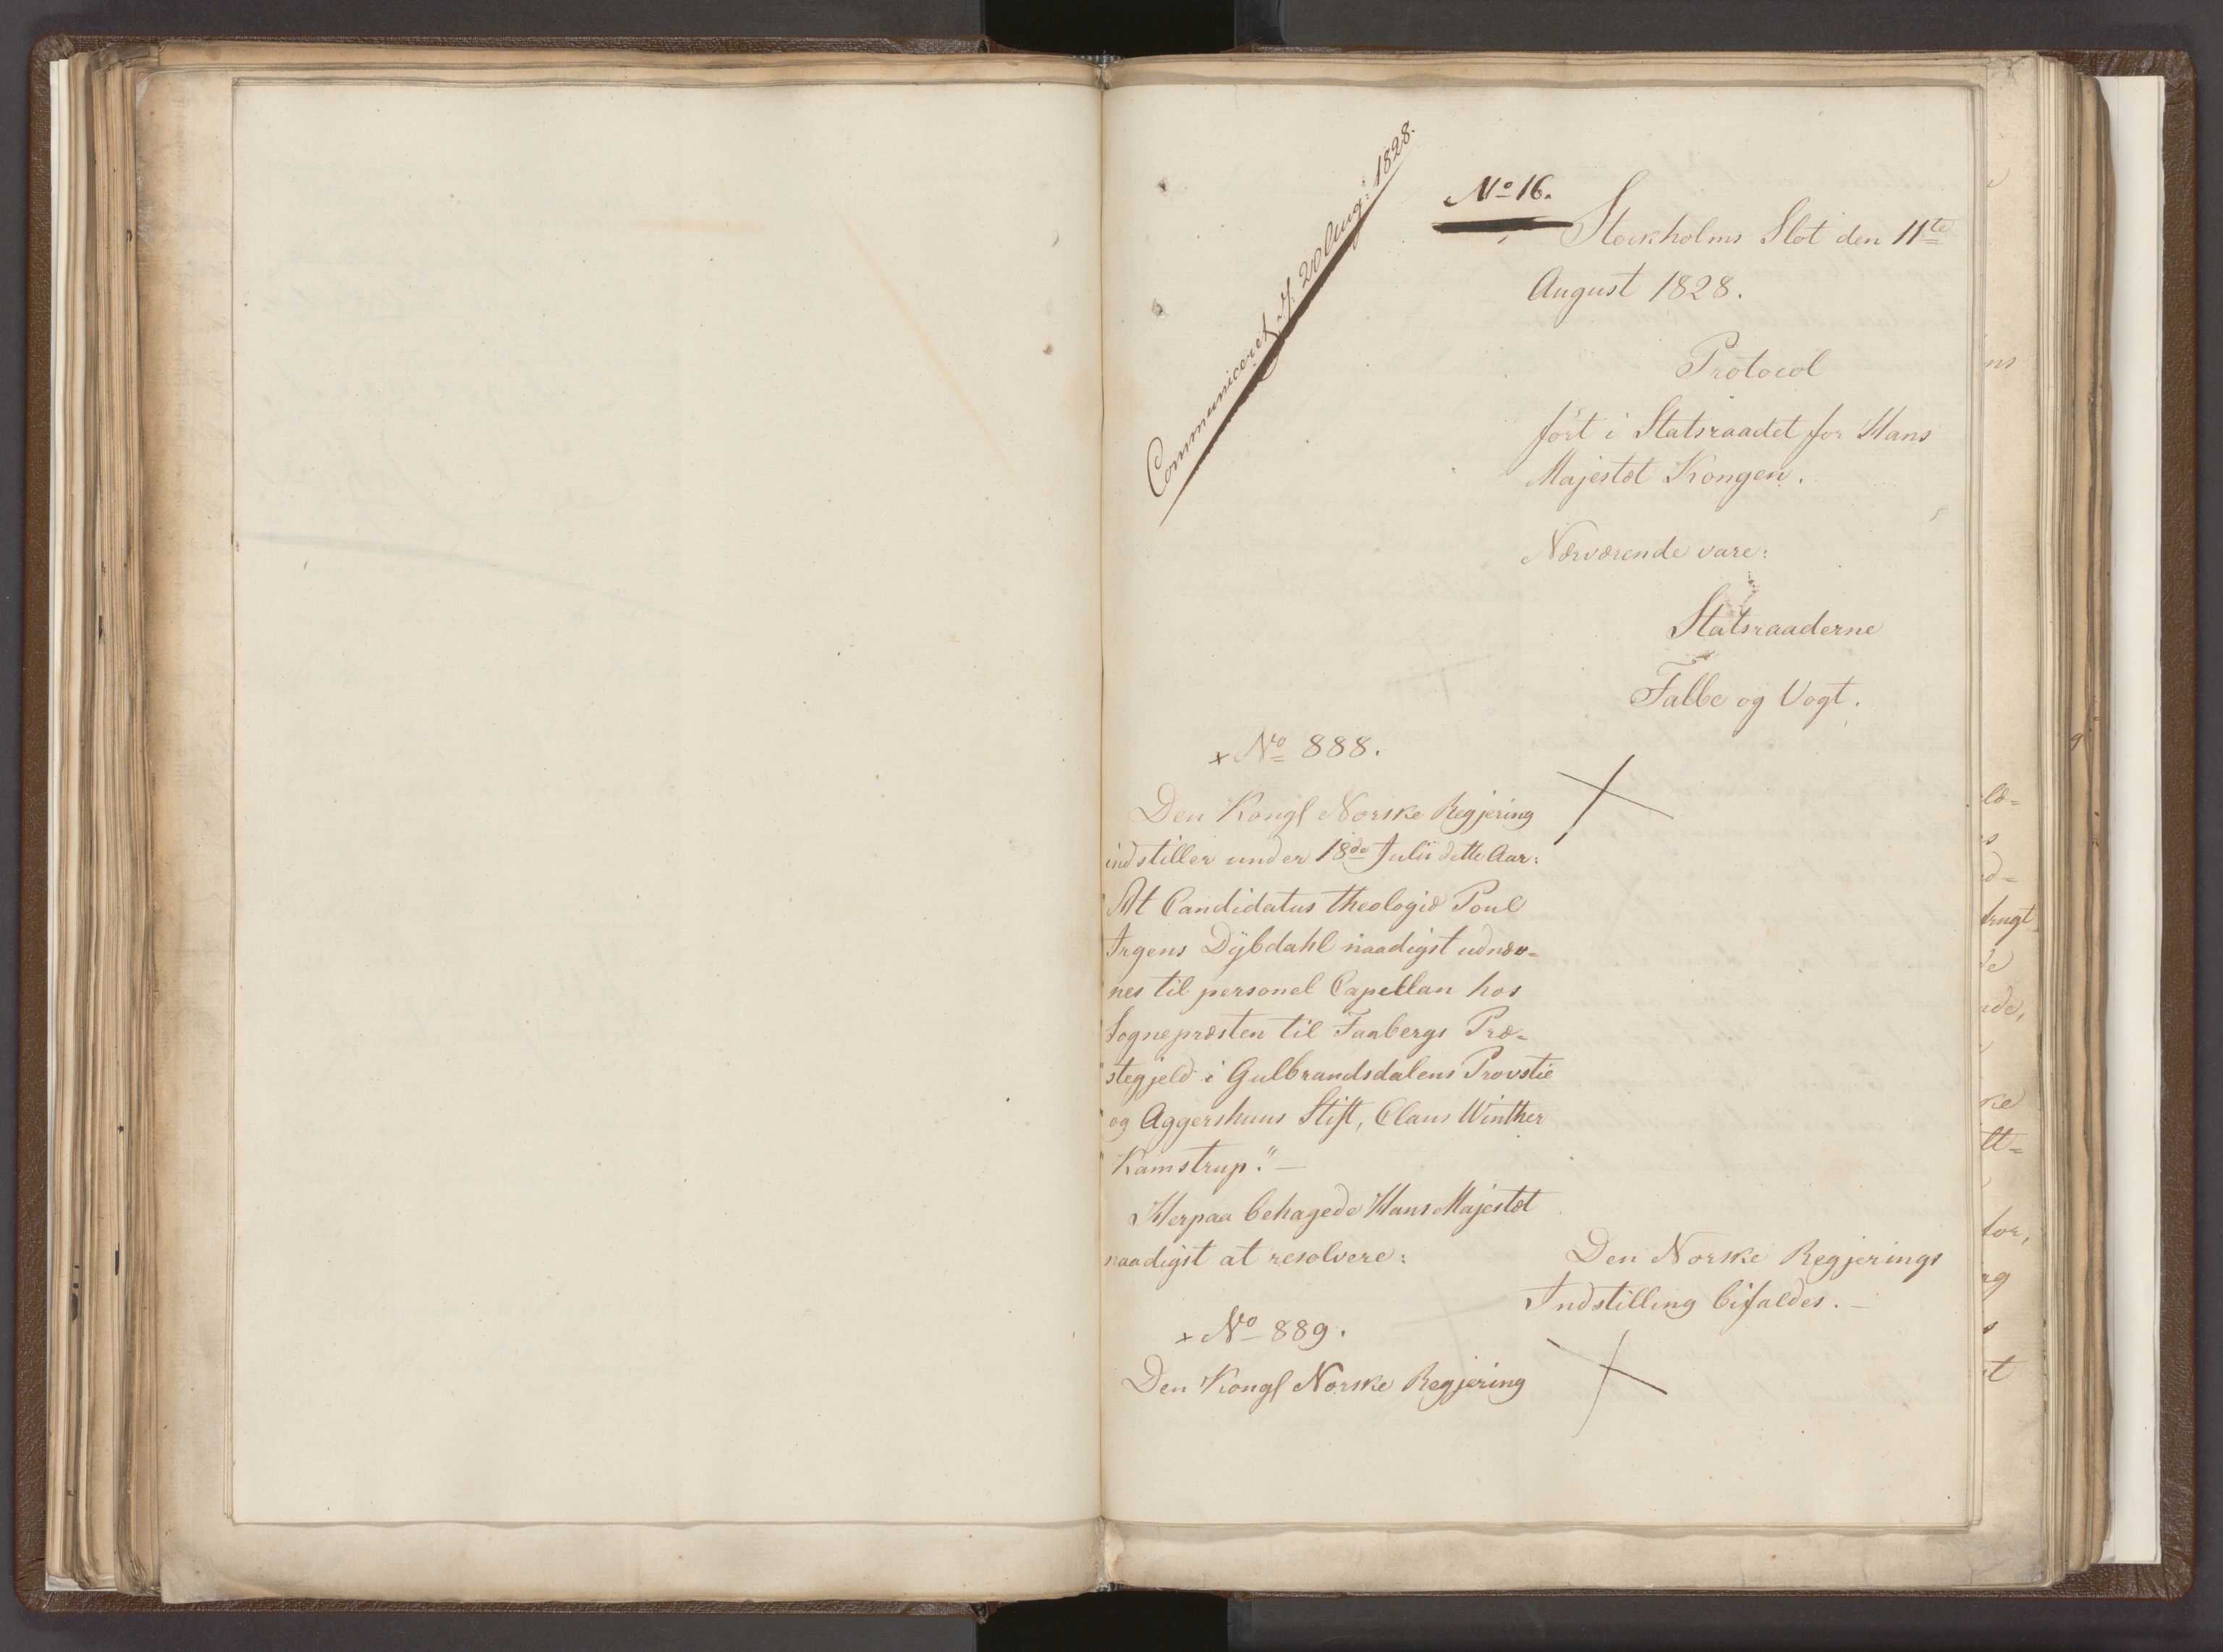 Communiceret d: 20 Aug: 1828.
No 16.
Stockholms Slot den 11te
August 1828.
Protocol
ført i Statsraadet for Hans
Majestæt Kongen.
Nærværende vare:
Statsraaderne
Falbe og Vogt.
x No 888.
Den Kongl Norske Regjering
indstiller under 18de Julii dette Aar:
"At Candidatus theologiæ Poul
"Irgens Dÿbdahl naadigst udnæv=
"nes til personel Capellan hos
"Sognepræsten til Faabergs Præ=
"stegjeld i Gulbrandsdalens Provstie
"og Aggershuus Stift, Claus Winther
"Kamstrup." —
Herpaa behagede Hans Majestæt
naadigst at resolvere:
Den Norske Regjerings
Indstilling bifaldes. —
x No 889.
Den Kongl Norske Regjering